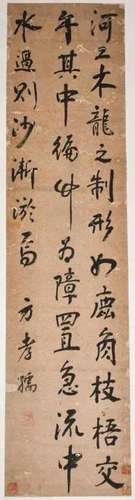 河工木龍之制形如鹿角枝梧交
午其中編竹為障置急流中
水遇則沙漸淤焉 方孝孺